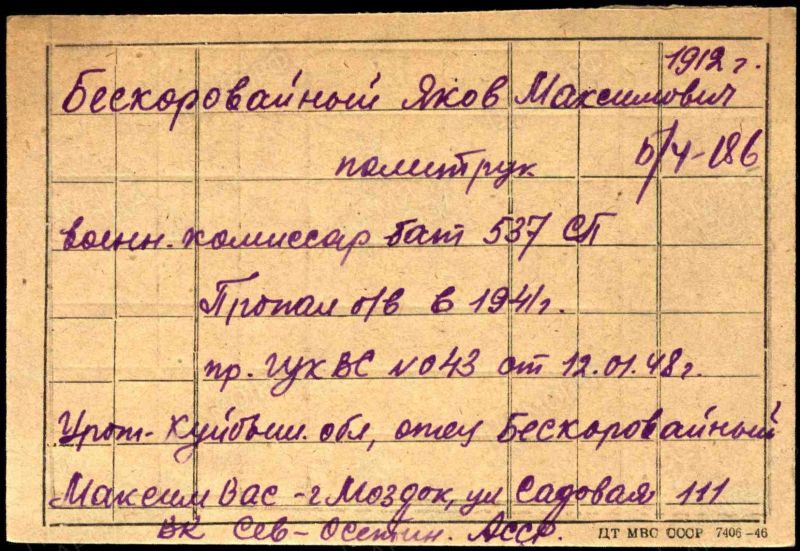 1912 г.
Бескоровайный Яков Максимович
политрук б/ч-186
военн. комиссар бат 537 СП
Пропал б/в в 1941г.
пр. ГУК ВС №043 от 12.01.48г.
Урож- Куйбыш. обл, отец Бескоровайный
Максим Вас - г Моздок, ул Садовая 111
ВК Сев-Осетин. АССР.
ДТ МВС СССР 7406-46